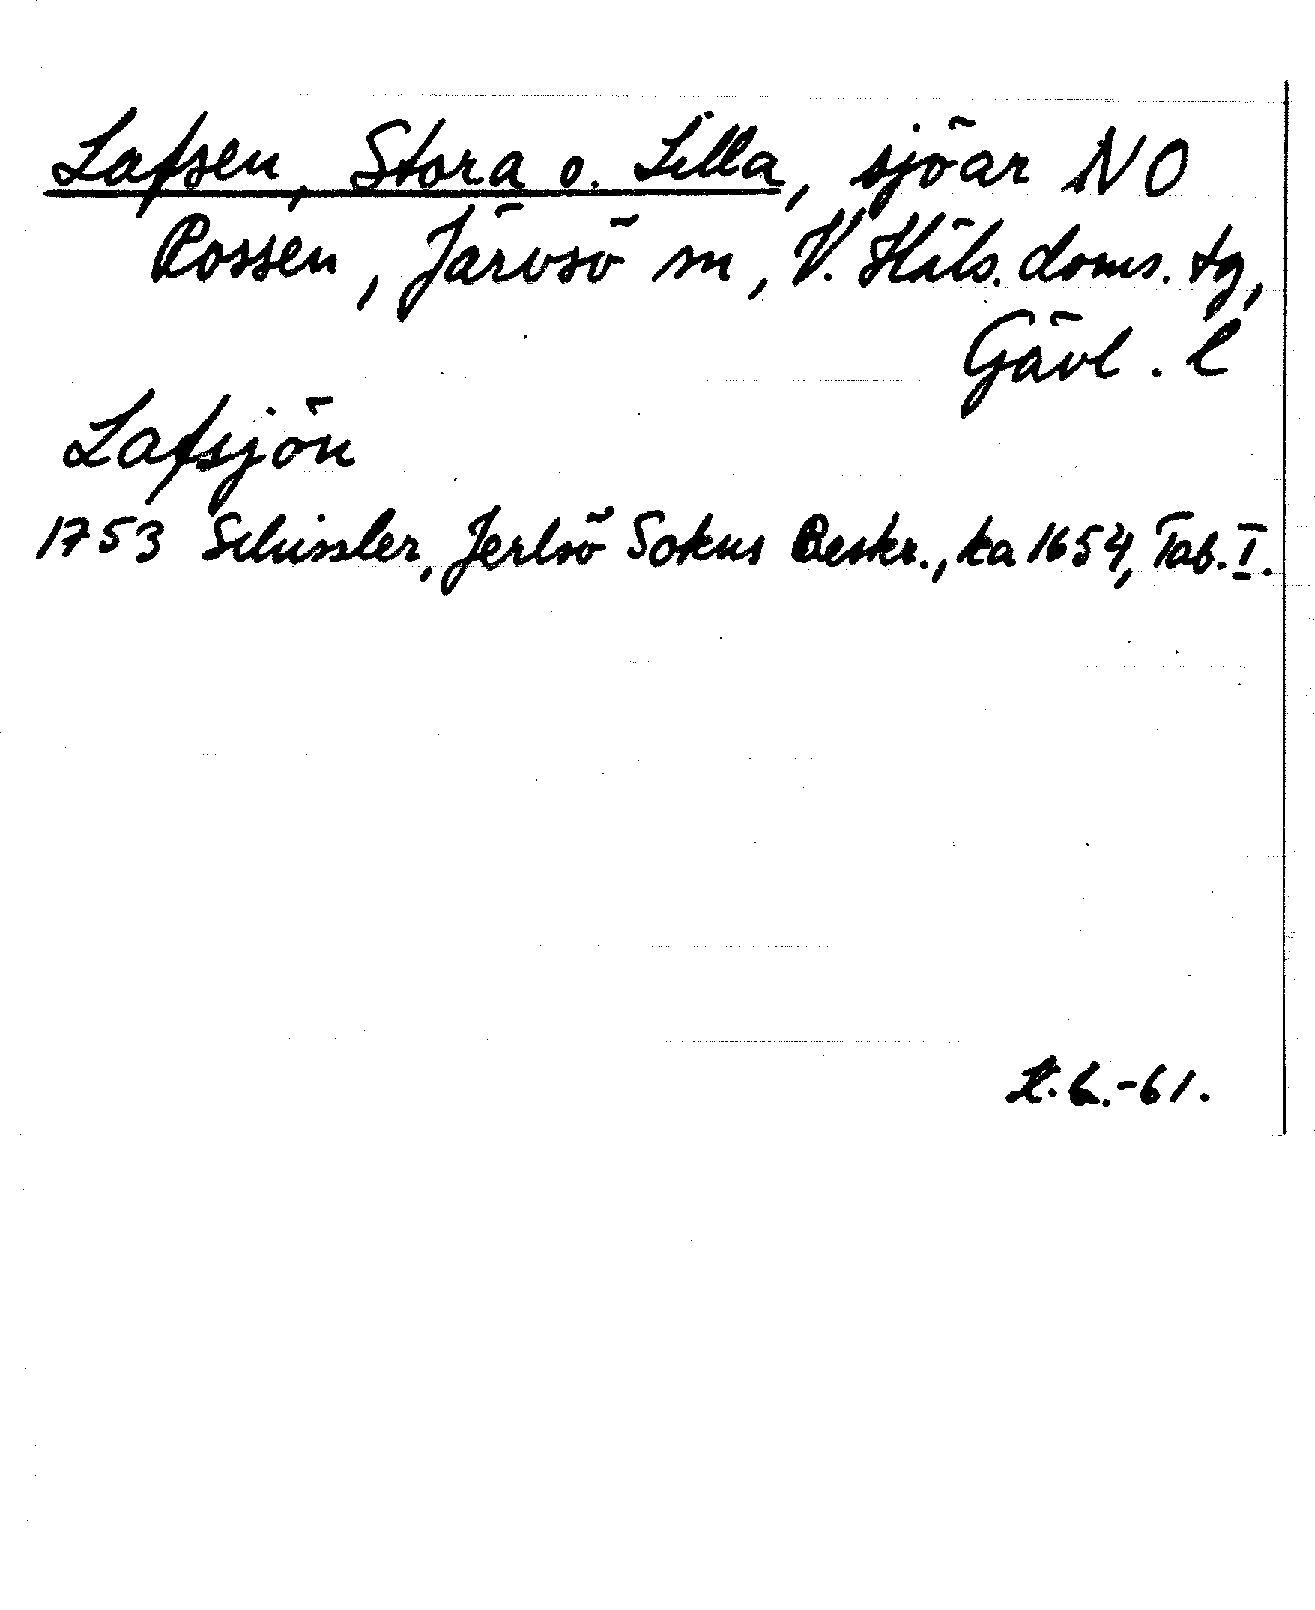 Lafsen, Stora o. Lilla, sjöar NO
Rossen, Järvsö sn, V. Häls. doms. tg,
Gävl. l
Lafsjön
1753 Schissler, Jerlsö Sokns Beskr., ka 1654, Tab. I.
-61.